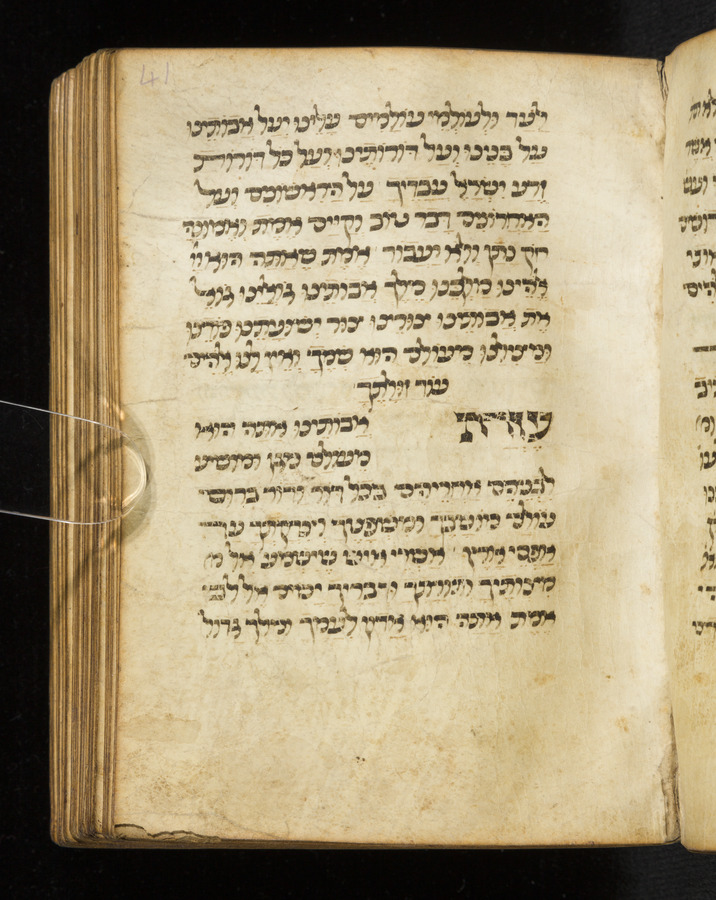 41
ולעד ולעולמי עולמים עלינו ועל אבותינו
ועל בנינו ועל דורותינו ועל כל דורות
זרע ישראל עבדיך על הראשונים ועל
האחרונים דבר טוב וקיים אמת ואמונה
חק נתן ולא יעבור אמת שאתה הוא יי
אלהינו מלכנו מלך אבותינו גואלינו גואל
את אבותינו יצורינו צור ישועתינו פודינו
ומצילנו מעולם הוא שמך ואין לנו אלהים
עוד זולתך
עזרת אבותינו אתה הוא
מעולם מגן ומושיע
לבניהם אחריהם בכל דור ודור ברום
עולם מושבך ומשפטיך וצדקתך עד
אפסי ארץ אשרי איש שישמע אל מ
מצותיך ותורתך ודברך ישים אל לבו
אמת אתה הוא אדון לעמך ומלך גדול